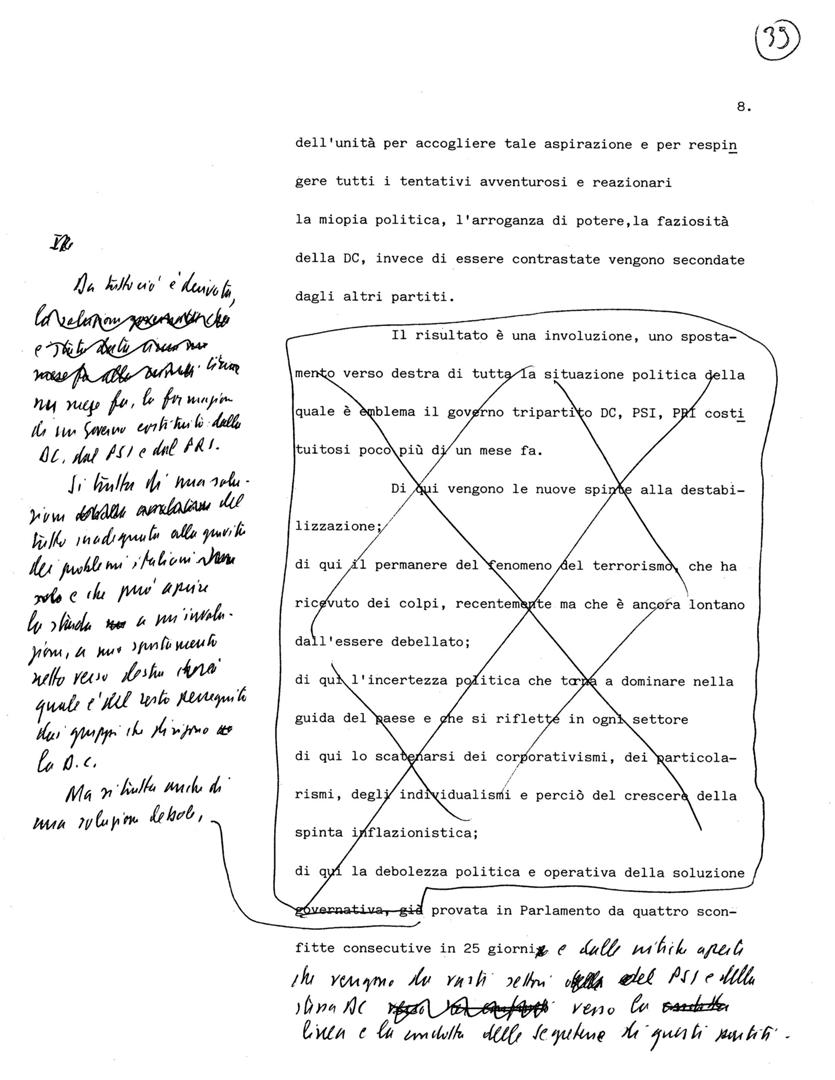 39
8.
dell'unità per accogliere tale aspirazione e per respin
gere tutti i tentativi avventurosi e reazionari
la miopia politica, l'arroganza di potere,la faziosità
della DC, invece di essere contrastate vengono secondate
dagli altri partiti.
Il risultato è una involuzione, uno sposta-
mento verso destra di tutta la situazione politica della
quale è emblema il governo tripartito DC, PSI, PRI costi
tuitosi poco più di un mese fa.
Di qui vengono le nuove spinte alla destabi-
lizzazione;
di qui il permanere del fenomeno del terrorismo, che ha
ricevuto dei colpi, recentemente ma che è ancora lontano
dall'essere debellato;
di qui l'incertezza politica che torna a dominare nella
guida del paese e che si riflette in ogni settore
di qui lo scatenarsi dei corporativismi, dei particola-
rismi, degli individualismi e perciò del crescere della
spinta inflazionistica;
di qui la debolezza politica e operativa della soluzione
governativa, già provata in Parlamento da quattro scon-
fitte consecutive in 25 giorni e dalle critiche aperte
che vengono da vasti settori del PSI e della
stessa DC verso la
linea e la condotta delle segreterie di questi partiti.
Da tutto ciò è derivata,
un mese fa, la formazione
di un Governo costituito dalla
DC, dal PSI e dal PRI.
Si tratta di una solu-
zione del
tutto inadeguata alla gravità
dei problemi italiani
e che può aprire
la strada a un'involu-
zione, a uno spostamento
netto verso destra
quale è del resto perseguito
dai gruppi che dirigono
la D.C.
Ma si tratta anche di
una soluzione debole,